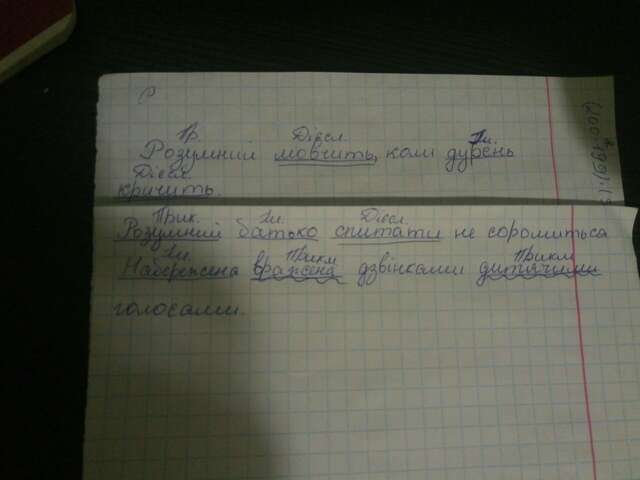 Р
Пр. Дієсл. Ім.
Розумний мовчить, коли дурень
Дієсл.
кричить.
Прик. Ім. Дієсл.
Розумний батько спитати не соромиться
Ім. Прикм Прикм
Набережна вражена дзвінкими дитячими
голосами.